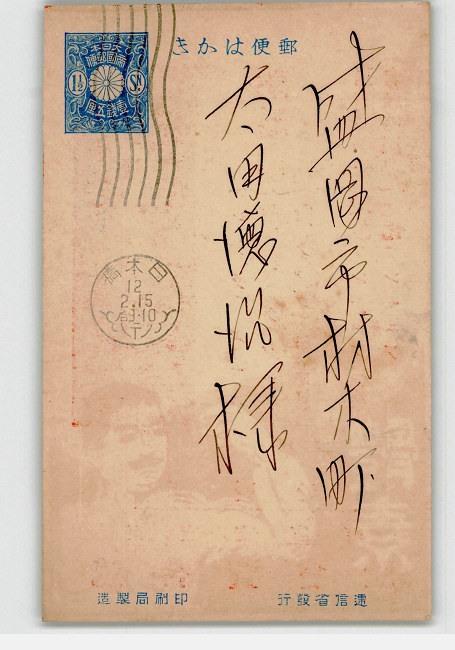 郵便はかき
大日本
帝國郵便
1½
Sn
壹錢五厘
日本橋
12
2.15
后3-10
盛岡市材木町
太田
様
遞信省發行
印刷局製造